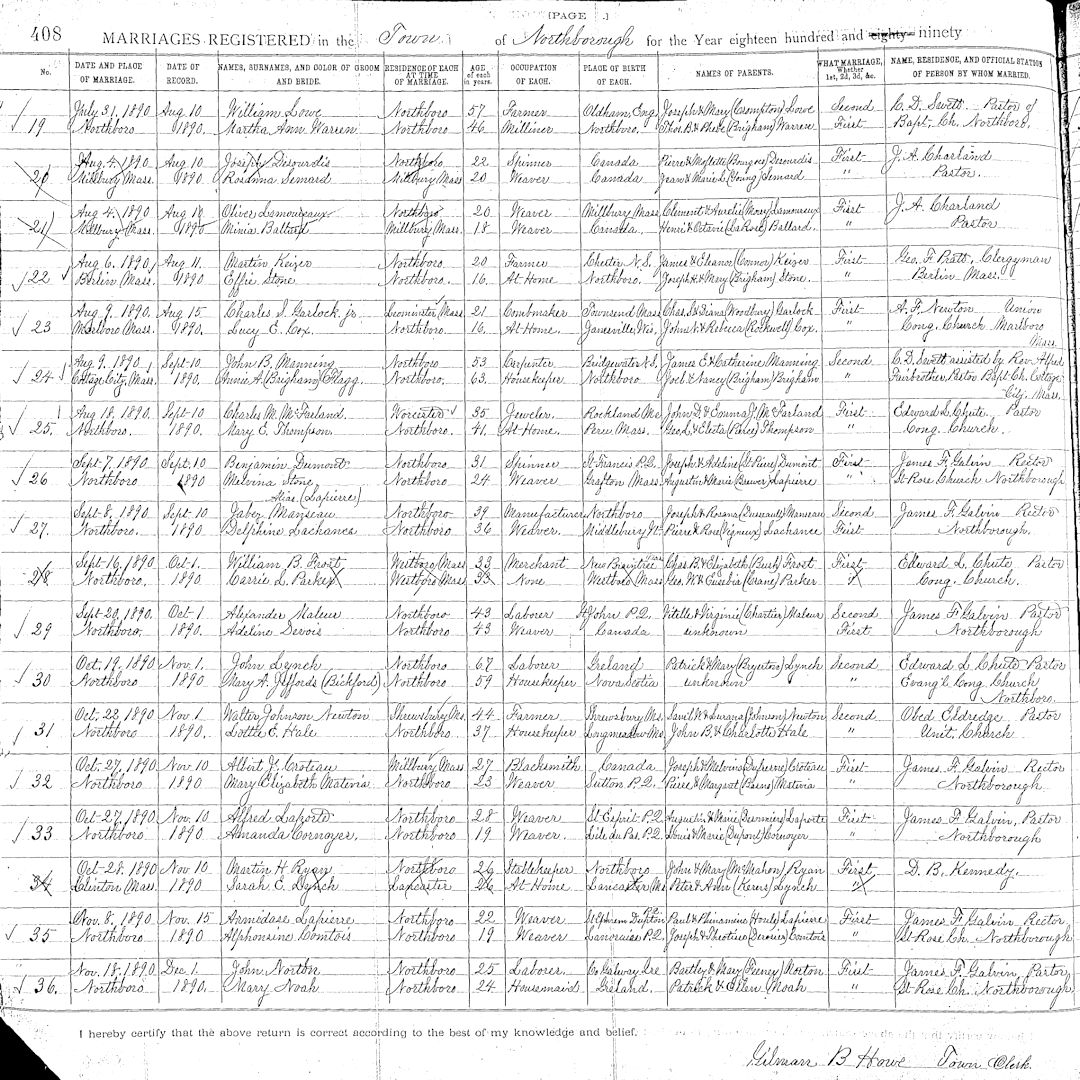 [PAGE .]
408
MARRIAGES REGISTERED in the Town of Northborough for the Year eighteen hundred and eighty- ninety
No. DATE AND PLACE OF MARRIAGE. DATE OF RECORD. NAMES, SURNAMES, AND COLOR OF GROOM AND BRIDE. RESIDENCE OF EACH AT TIME OF MARRIAGE. AGE of each in years. OCCUPATION OF EACH. PLACE OF BIRTH OF EACH. NAMES OF PARENTS. WHAT MARRIAGE, Whether 1st, 2d, 3d, &c. NAME, RESIDENCE, AND OFFICIAL STATION OF PERSON BY WHOM MARRIED.
July 31, 1890 Aug. 10 William Lowe Northboro 57 Farmer Oldham, Eng. Joseph & Mary (Crompton) Lowe Second C. D. Swett Pastor of
19 Northboro 1890. Martha Ann Warren Northboro 46 Milliner Northboro. Thos. B. & Phebe (Brigham) Warren First Bapt. Ch. Northboro.
Aug. 4, 1890 Aug. 10 Joseph Desourdis Northboro 22 Spinner Canada Pierre & Desourdis First J. A. Charland
20 Millbury Mass. 1890 Rosanna Semard Millbury Mass 20 Weaver Canada Jean & Marie L. (Young) Semard " Pastor.
Aug 4, 1890 Aug 10 Oliver Lamoureaux Northboro 20 Weaver Millbury Mass Clement & Aurelie (Mory) Lamoureux First J. A. Charland
21 Millbury Mass. 1890 Minia Ballard Millbury Mass. 18 Weaver Canada. Henri & Octavie (LaRose) Ballard. " Pastor
Aug 6, 1890 Aug 11. Martin Keizer Northboro. 20 Farmer Chester N.S. James & Eleanor (Connor) Keizer First Geo. F. Pratt, Clergyman
22 Berlin Mass. 1890 Effie Stone Northboro. 16. At Home Northboro. Joseph H. & Mary (Brigham) Stone. " Berlin Mass.
Aug 9, 1890. Aug 15 Charles S. Garlock jr. Leominster Mass 21 Combmaker Townsend Mass Chas. S. & Diana (Woodbury) Garlock First A. F. Newton Union
23 Marlboro Mass. 1890. Lucy E. Cox. Northboro. 16. At Home. Janesville, Wis. John N. & Rebeca (Rockwell) Cox. " Cong. Church Marlboro
Mass.
Aug 9. 1890 Sept. 10 John B. Manning Northboro 53 Carpenter Bridgewater N.S. James E. & Catherine Manning Second C. D. Swett assisted by Rev. Alfred
24 Cottage City, Mass. 1890. Annie A. (Brigham) Flagg. Northboro. 63. Housekeeper Northboro Joel & Nancy (Brigham) Brigham " Fairbrother, Pastor Bapt. Ch. Cottage
City. Mass.
Aug 18, 1890 Sept. 10 Charles M. McFarland. Worcester 35 Jeweler. Rockland Me. John D. & Emma J. McFarland First Edward L. Chute. Pastor
25. Northboro. 1890. Mary E. Thompson. Northboro. 41. At Home. Peru, Mass. Geo. L. & Electa (Pierce) Thompson " Cong. Church.
Sept. 7, 1890 Sept. 10 Benjamin Dumont Northboro 31 Spinner St Francis P.Q. Joseph & Adeline (St Pierre) Dumont First James F. Galvin Rector
26 Northboro 1890 Melvina Stone Northboro 24 Weaver Grafton Mass. Augustin & Marie (Brewer) Lapierre " St. Rose Church Northborough
Alias (Lapierre)
Sept 8, 1890 Sept. 10 Jabez Manseau Northboro 39 Manufacturer Northboro Joseph & Rosana Manseau Second James F. Galvin Rector
27. Northboro. 1890. Delphine Lachance Northboro 36 Weaver. Middlebury Vt. Pierre & Rose (Vigneux) Lachance First Northborough.
Sept. 16, 1890 Oct. 1. William B. Frost Westboro Mass 33 Merchant New Braintree Mass Chas. B. & Elizabeth (Bush) Frost First Edward L. Chute Pastor
28 Northboro. 1890 Carrie L. Parker Westboro Mass 33 None Westboro Mass Geo. W. & Eusebia (Crane) Parker " Cong. Church.
Sept. 20, 1890. Oct. 1 Alexander Maleux Northboro 43 Laborer St John P.Q. Vitelle & Virginie (Chartier) Maleux Second James F. Galvin Pastor
29 Northboro. 1890. Adeline Devois Northboro 43 Weaver Canada unknown First Northborough
Oct. 19, 1890 Nov. 1. John Lynch Northboro 67 Laborer Ireland Patrick & Mary Lynch Second Edward L. Chute Pastor
30 Northboro 1890 Mary A. Jeffords (Bickford) Northboro 59 Housekeeper Nova Scotia unknown " Evang'l Cong. Church
Northboro.
Oct. 22, 1890 Nov. 1 Walter Johnson Newton Shrewsbury Ms. 44. Farmer Shrewsbury Ms. Savil W. & Lurana (Johnson) Newton Second Obed Eldredge Pastor
31 Northboro 1890. Lottie E. Hale Northboro. 37 Housekeeper Longmeadow Ms. John B. & Charlotte Hale " Unit. Church
Oct. 27, 1890 Nov. 10 Albert J. Croteau Millbury Mass 27 Blacksmith Canada Joseph & Melvina (Dupierre) Croteau First James F. Galvin Rector
32 Northboro 1890 Mary Elizabeth Mativia Northboro 23 Weaver Sutton P.Q. Pierre & Margret Mativia " Northborough
Oct. 27, 1890 Nov. 10 Alfred Laporte Northboro 28 Weaver St Esprit P.Q. Augustin & Marie Laporte First James F. Galvin, Pastor
33 Northboro 1890 Amanda Cornoyer. Northboro 19 Weaver. Isle du Pas. P.Q. Louis & Marie (Dupont) Cornoyer " Northborough
Oct. 28. 1890 Nov 10 Martin H. Ryan Northboro 26 Stablekeeper Northboro John & Mary (McMahon) Ryan First D. B. Kennedy.
34 Clinton Mass. 1890 Sarah E. Lynch Lancaster 26 At Home Lancaster Ms. Peter & Ann (Kerns) Lynch "
Nov. 8, 1890 Nov. 15 Armidase Lapierre Northboro 22 Weaver Paul & Philnamine (Houle) Lapierre First James F. Galvin Rector,
35 Northboro 1890 Alphonsine Comtois Northboro 19 Weaver Lanoraie P.Q. Joseph & Comtois " St Rose Ch. Northborough
Nov. 18, 1890 Dec. 1. John Norton Northboro 25 Laborer. Co Galway Ire Bartley & Mary (Feeney) Norton First James F. Galvin, Pastor
36. Northboro 1890. Mary Noah Northboro 24 Housemaid Ireland. Patrick & Ellen Noah St Rose Ch. Northborough
I hereby certify that the above return is correct according to the best of my knowledge and belief.
Gilman B Howe Town Clerk.